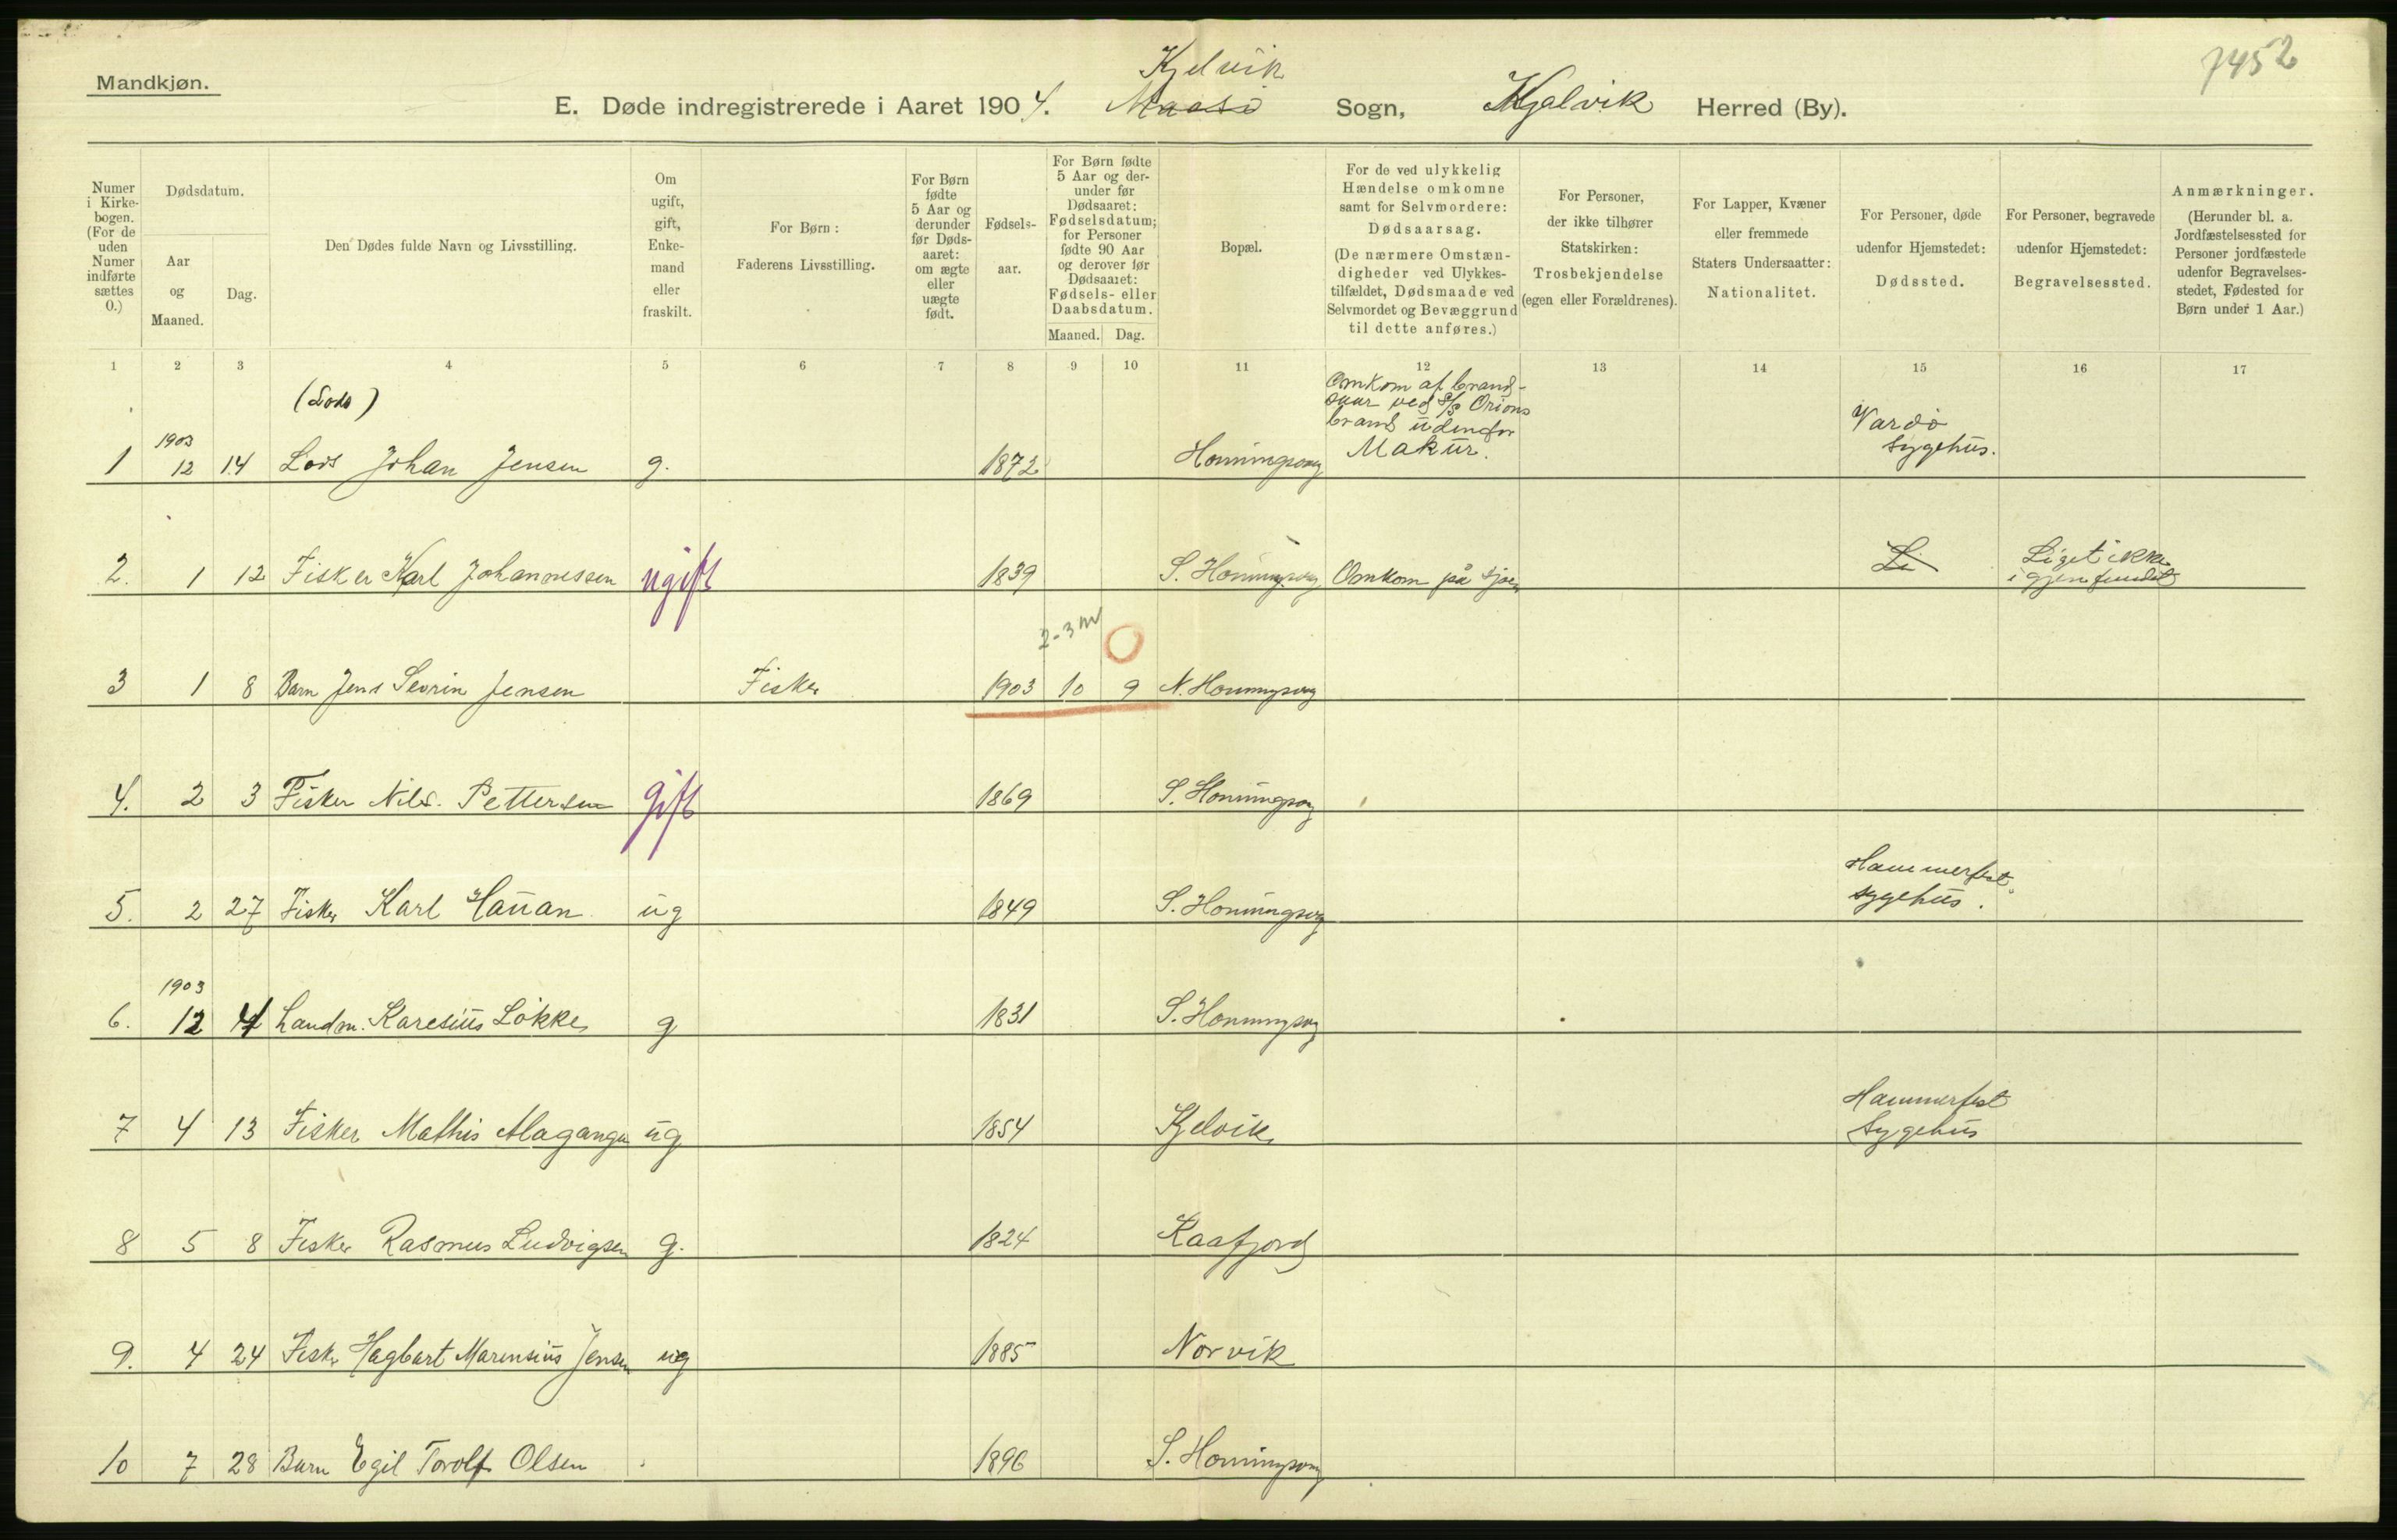 7452
Mandkjøn.
Kjelvik
E. Døde indregistrerede i Aaret 1904. Maasö Sogn, Kjelvik Herred (By).
Numer i Kirkebogen. (For de uden Numer indførte sættes 0.)
Dødsdatum.
Aar og Maaned.
Dag.
Den Dødes fulde Navn og Livsstilling.
Om ugift, gift, Enkemand eller fraskilt.
For Børn: Faderens Livsstilling.
For Børn fødte 5 Aar og derunder før Dødsaaret: om ægte eller uægte født.
Fødselsaar.
For Børn fødte 5 Aar og derunder før Dødsaaret: Fødselsdatum; for Personer fødte 90 Aar og derover før Dødsaaret: Fødsels- eller Daabsdatum.
Maaned. Dag.
Bopæl.
For de ved ulykkelig Hændelse omkomne samt for Selvmordere: Dødsaarsag. (De nærmere Omstændigheder ved Ulykkestilfældet, Dødsmaade ved Selvmordet og Bevæggrund til dette anføres.)
For Personer, der ikke tilhører Statskirken: Trosbekjendelse (egen eller Forældrenes).
For Lapper, Kvæner eller fremmede Staters Undersaatter: Nationalitet.
For Personer, døde udenfor Hjemstedet: Dødssted.
For Personer, begravede udenfor Hjemstedet: Begravelsessted.
Anmærkninger. (Herunder bl. a. Jordfæstelsessted for Personer jordfæstede udenfor Begravelsesstedet, Fødested for Børn under 1 Aar.)
1 2 3 4 5 6 7 8 9 10 11 12 13 14 15 16 17
(Lods)
1 1903 12 14 Lods Johan Jensen g. 1872 Honningsvog Omkom af brandsaar ved S/S Orions brand udenfor Makur. Vardö sygehus.
2. 1 12 Fisker Karl Johannessen ugift 1839 S. Honningsvog Omkom på sjøen Li Liget ikke igjenfundet
2-3 m
3 1 8 Barn Jens Sevrin Jensen Fisker 1903 10 9 N. Honningsvog
4. 2 3 Fisker Nils Pettersen gift 1869 S. Honningsvog
5. 2 27 Fisker Karl Hauan ug 1849 S. Honningsvog Hammerfest sygehus.
6. 1903 12 4 Landm. Karesius Lökke g 1831 S. Honningsvog
7 4 13 Fisker Mathis ug 1854 Kjelvik Hammerfest Sygehus
8 5 8 Fisker Rasmus Ludvigsen g. 1824 Kaafjord
9. 4 24 Fisker Hagbart Marensius Jensen ug 1885 Norvik
10 7 28 Barn Egil Torolf Olsen 1896 S. Honningsvog